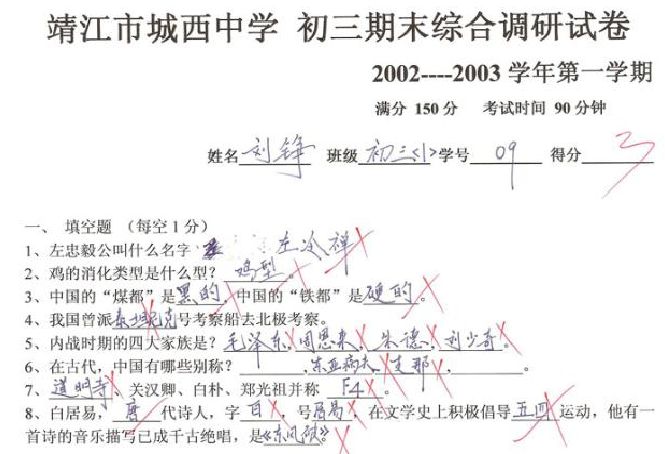 靖江市城西中学 初三期末综合调研试卷
2002----2003 学年第一学期
满分 150分 考试时间 90分钟
姓名 刘铮 班级 初三<1> 学号 09 得分 3
一、 填空题 (每空1分)
1、左忠毅公叫什么名字 左冷禅
2、鸡的消化类型是什么型? 鸡型。
3、中国的“煤都”是黑的,中国的“铁都”是硬的。
4、我国曾派泰坦尼克号考察船去北极考察。
5、内战时期的四大家族是?毛泽东、周恩来、朱德、刘少奇。
6、在古代,中国有哪些别称? 、东亚病夫、支那、 。
7、道明寺、关汉卿、白朴、郑光祖并称 F4 。
8、白居易, 唐 代诗人,字 白 ,号居易,在文学史上积极倡导五四运动,他有一
首诗的音乐描写已成千古绝唱,是《东风破》。